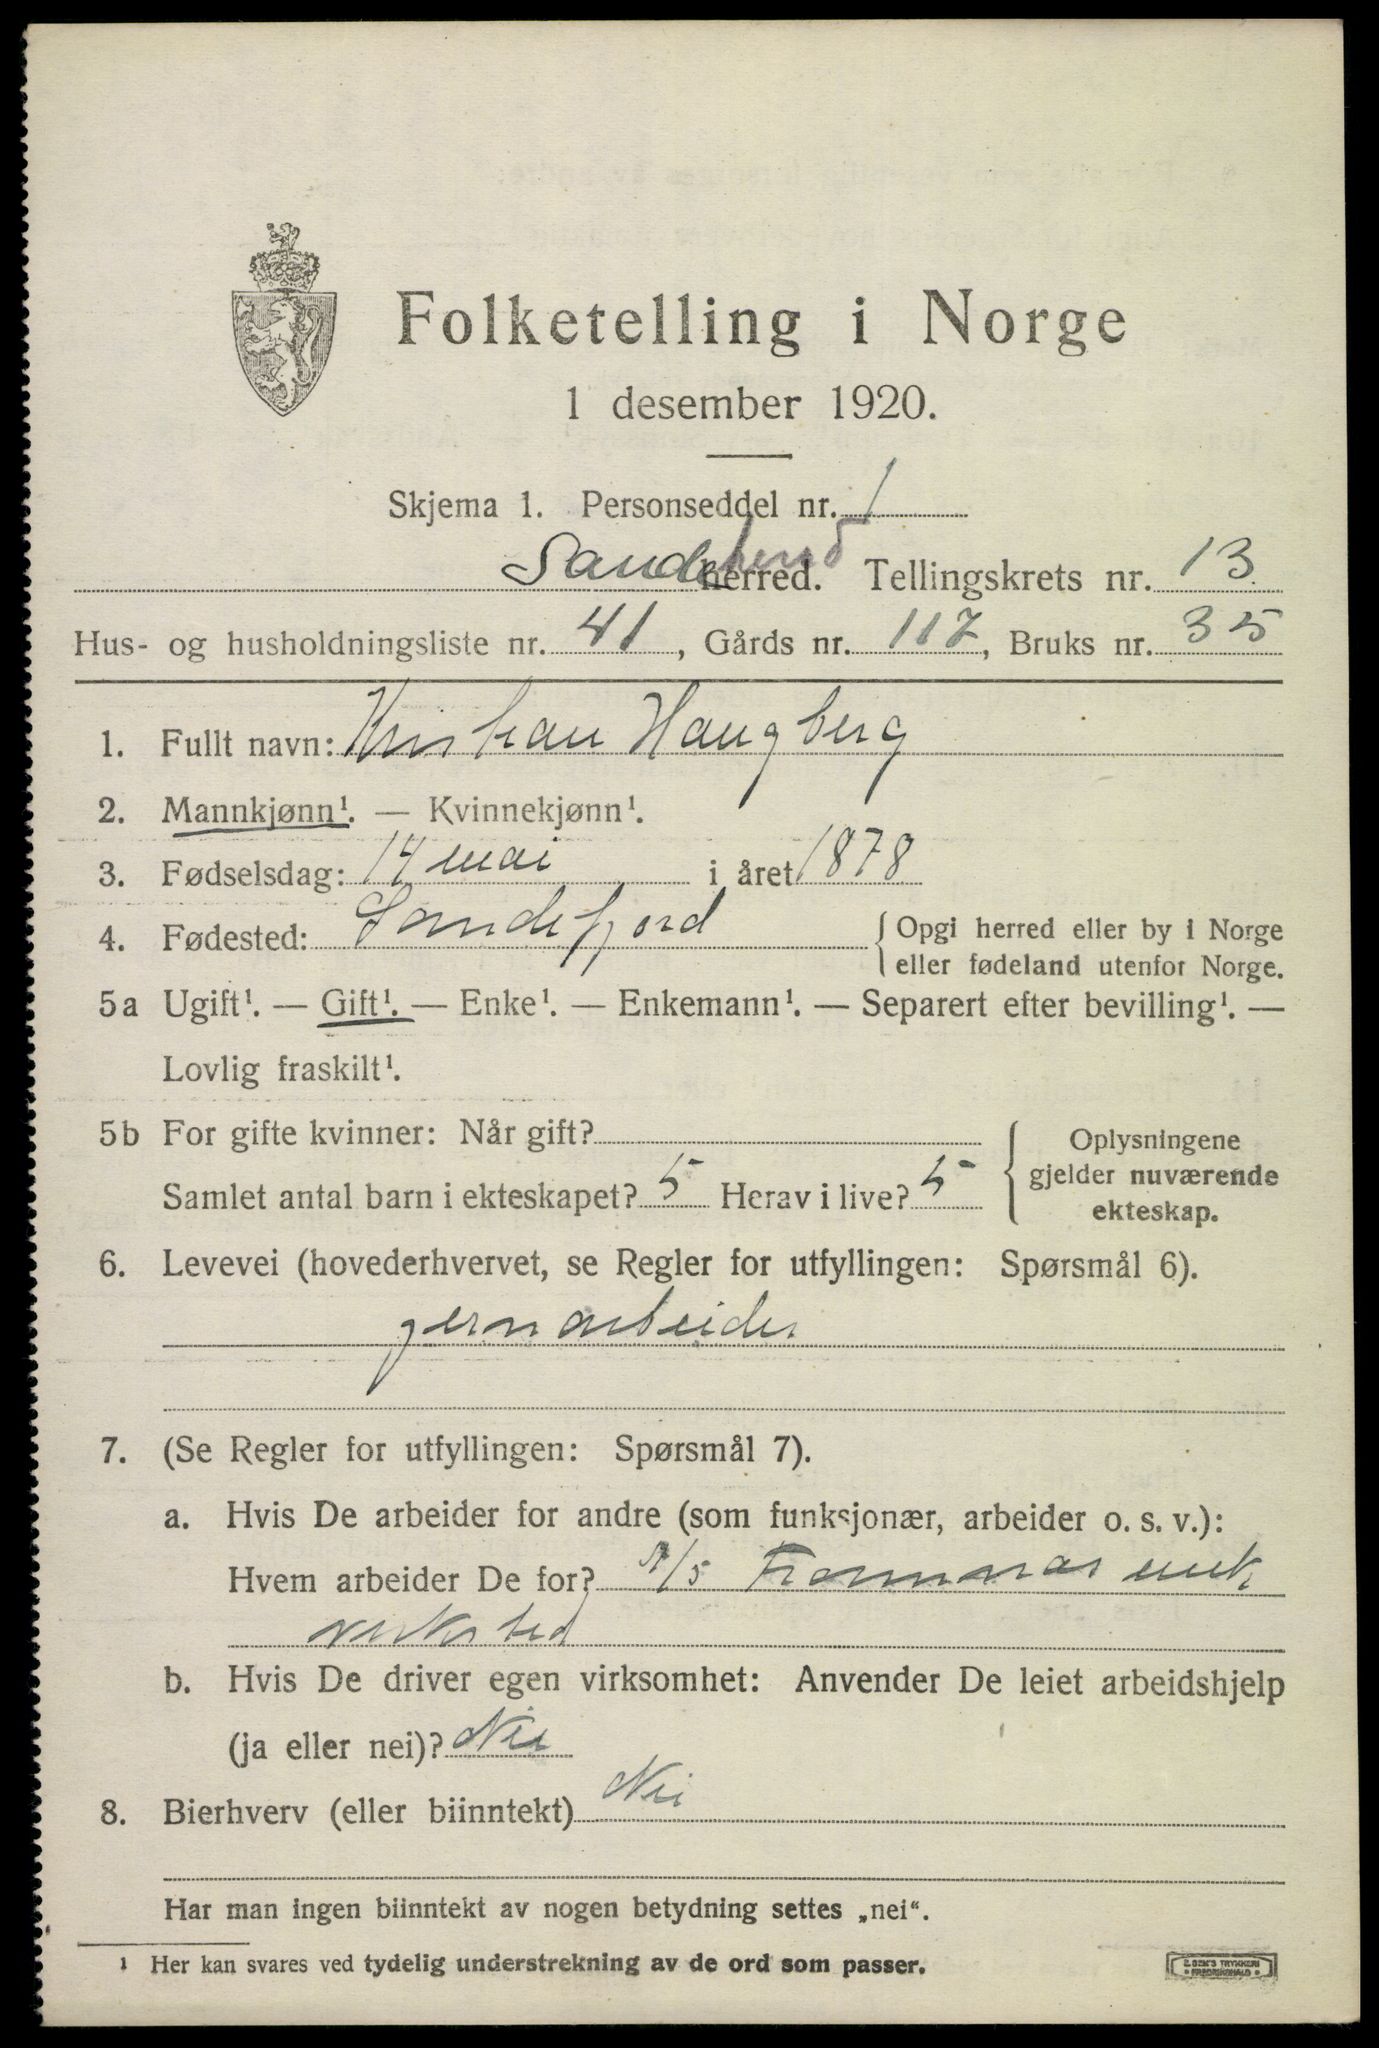 Folketelling i Norge
1 desember 1920.
Skjema 1. Personseddel nr. 1
Sandeherred herred. Tellingskrets nr. 13
Hus- og husholdningsliste nr. 41, Gårds nr. 117, Bruks nr. 35
1. Fullt navn: Kristian Haugberg
2. Mannkjønn¹. — Kvinnekjønn¹.
3. Fødselsdag: 14 mai i året 1878
4. Fødested: Sandefjord
{ Opgi herred eller by i Norge
eller fødeland utenfor Norge.
5a Ugift¹. — Gift¹. — Enke¹. — Enkemann¹. — Separert efter bevilling¹. —
Lovlig fraskilt¹.
5b For gifte kvinner: Når gift?
Samlet antal barn i ekteskapet? 5 Herav i live? 5
{ Oplysningene
gjelder nuværende
ekteskap.
6. Levevei (hovederhvervet, se Regler for utfyllingen: Spørsmål 6).
jernarbeider
7. (Se Regler for utfyllingen: Spørsmål 7).
a. Hvis De arbeider for andre (som funksjonær, arbeider o. s. v.):
Hvem arbeider De for? A/S Framnæs mek.
verksted
b. Hvis De driver egen virksomhet: Anvender De leiet arbeidshjelp
(ja eller nei)? Nei
8. Bierhverv (eller biinntekt) Nei
Har man ingen biinntekt av nogen betydning settes „nei“.
¹ Her kan svares ved tydelig understrekning av de ord som passer.